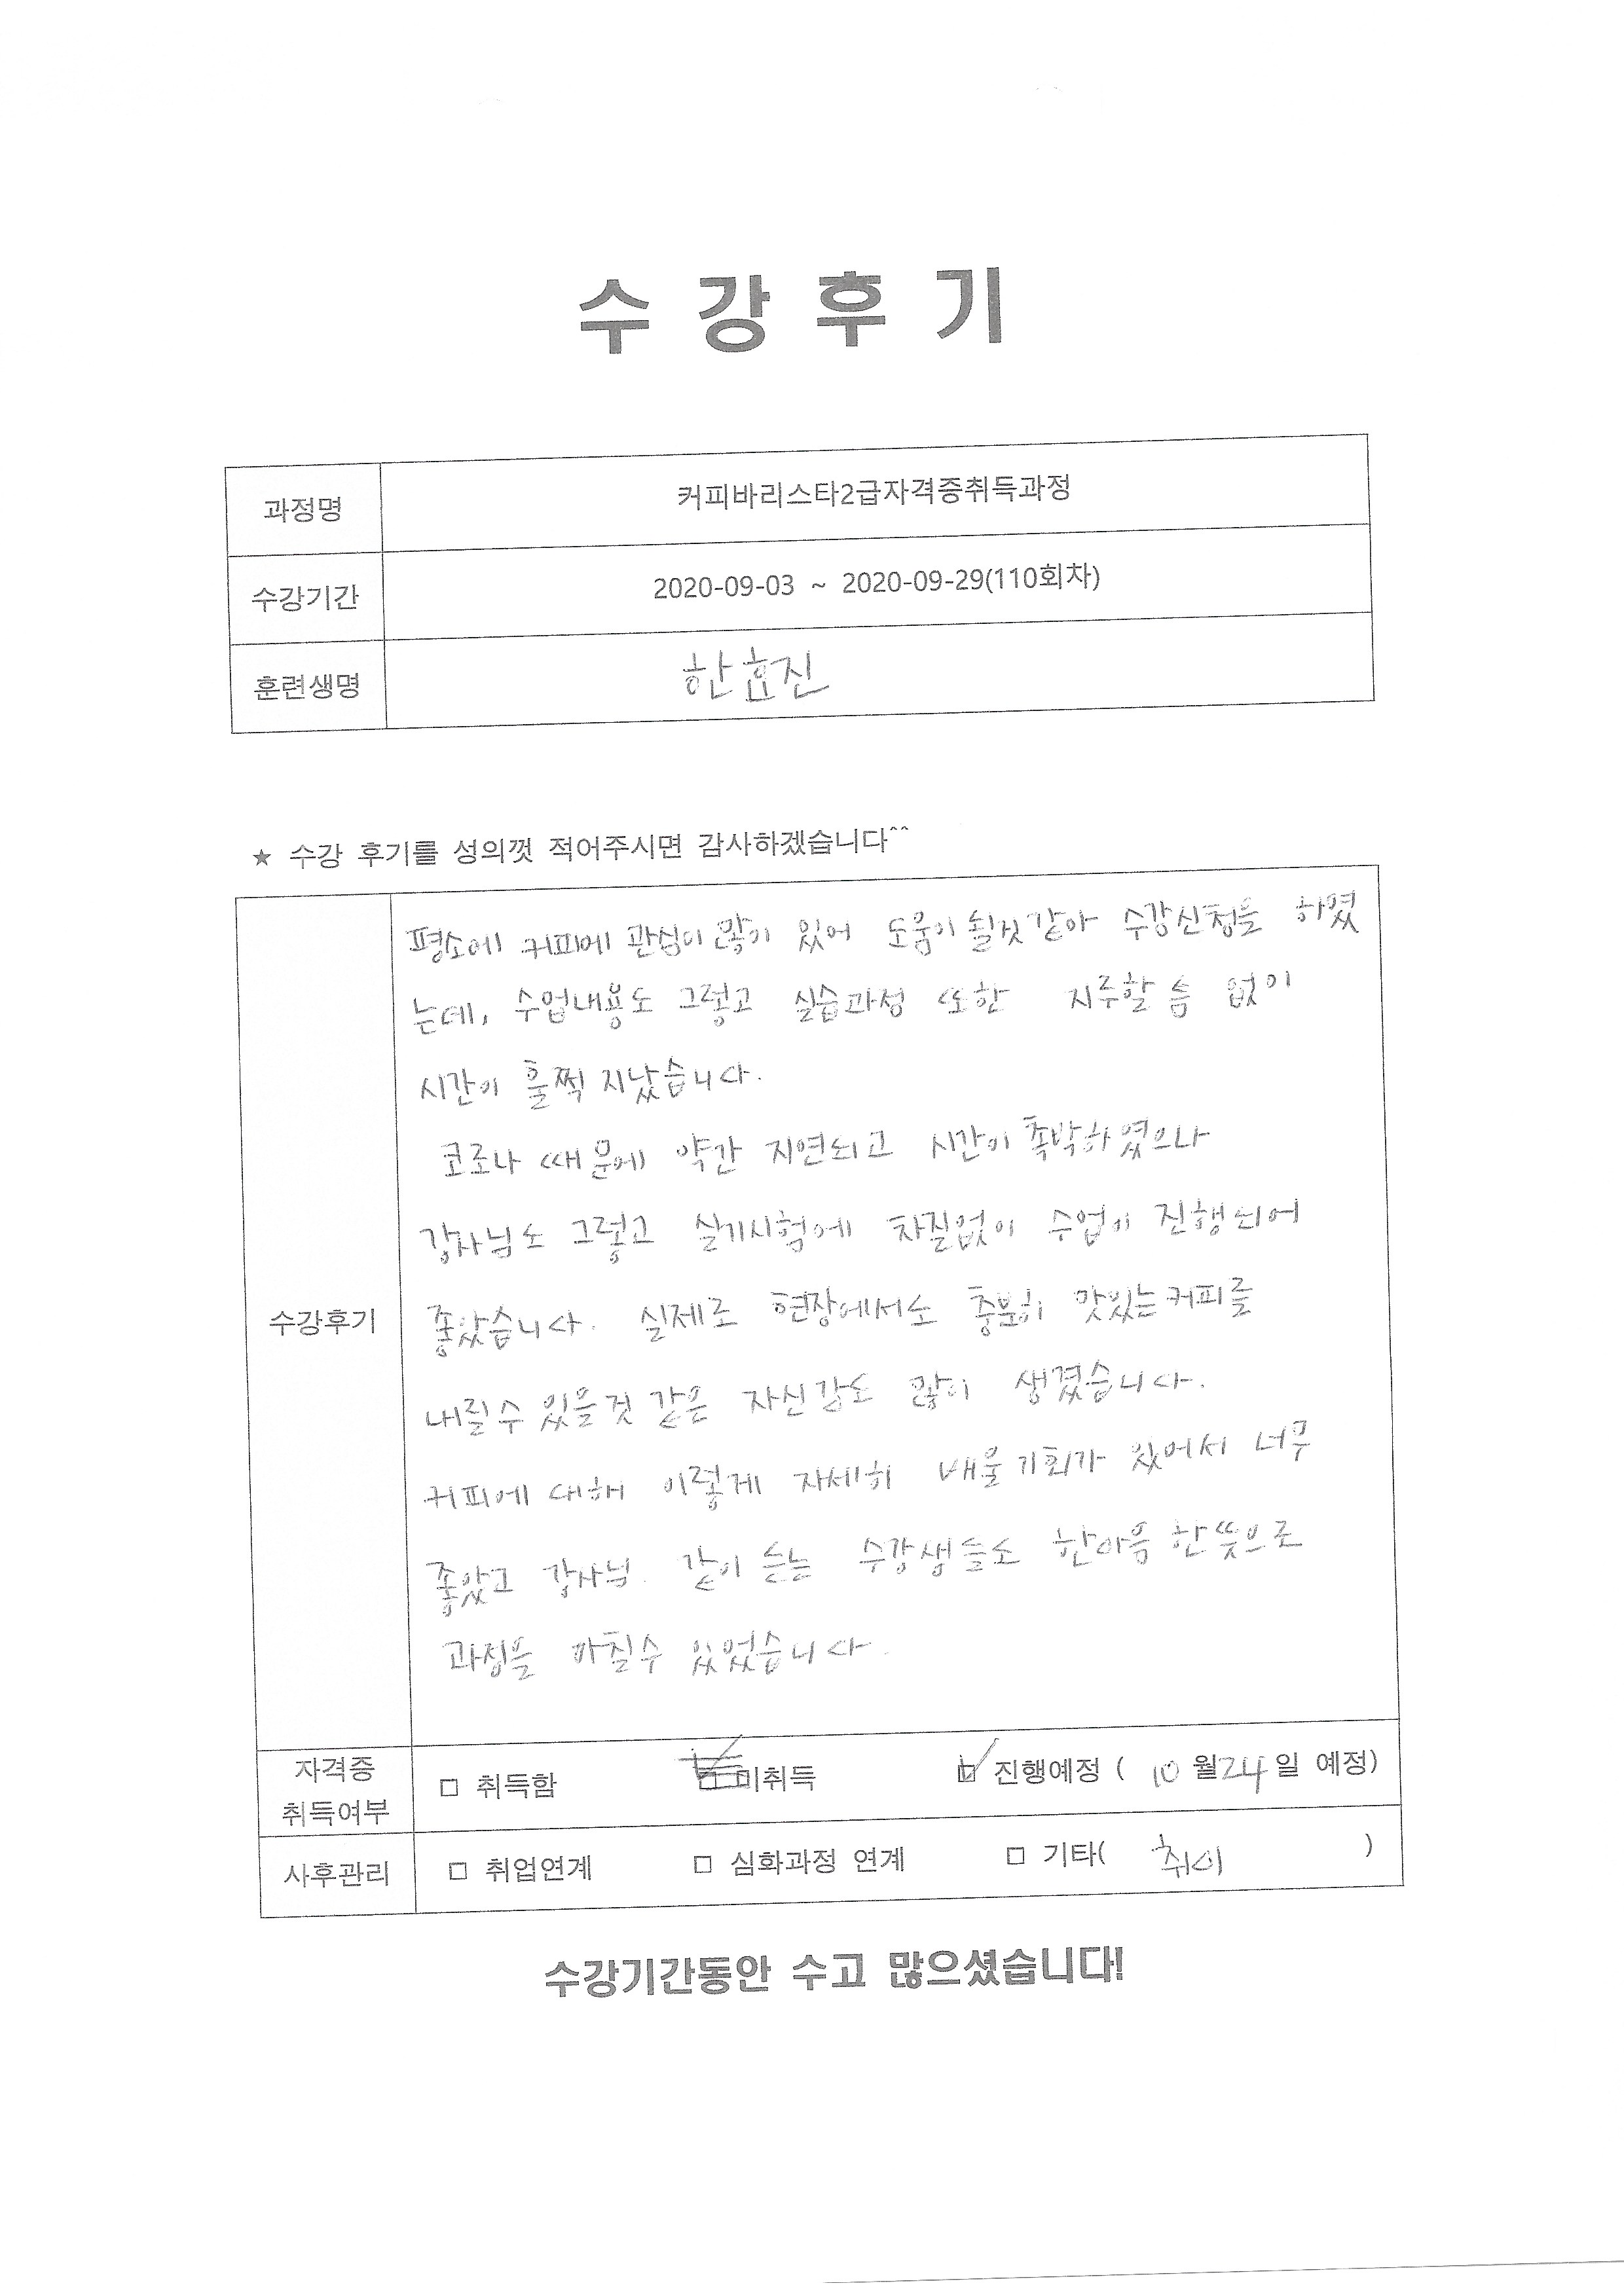 수 강 후 기
과정명 커피바리스타2급자격증취득과정
수강기간 2020-09-03 ~ 2020-09-29(110회차)
훈련생명 한효진
★ 수강 후기를 성의껏 적어주시면 감사하겠습니다^^
평소에 커피에 관심이 많이 있어 도움이 될것 같아 수강신청을 하였
는데, 수업내용도 그렇고 실습과정 또한 지루할 틈 없이
시간이 훌쩍 지났습니다.
코로나 때문에 약간 지연되고 시간이 촉박하였으나
강사님도 그렇고 실기시험에 차질없이 수업이 진행되어
좋았습니다. 실제로 현장에서도 충분히 맛있는 커피를
내릴수 있을것 같은 자신감도 많이 생겼습니다.
수강후기
커피에 대해 이렇게 자세히 배울 기회가 있어서 너무
좋았고 강사님. 같이 듣는 수강생들도 한마음 한뜻으로
과정을 마칠수 있었습니다.
자격증 취득여부 □ 취득함 □ 미취득 □ 진행예정 ( 10 월 24 일 예정)
사후관리 □ 취업연계 □ 심화과정 연계 □ 기타( 취미 )
수강기간동안 수고 많으셨습니다!